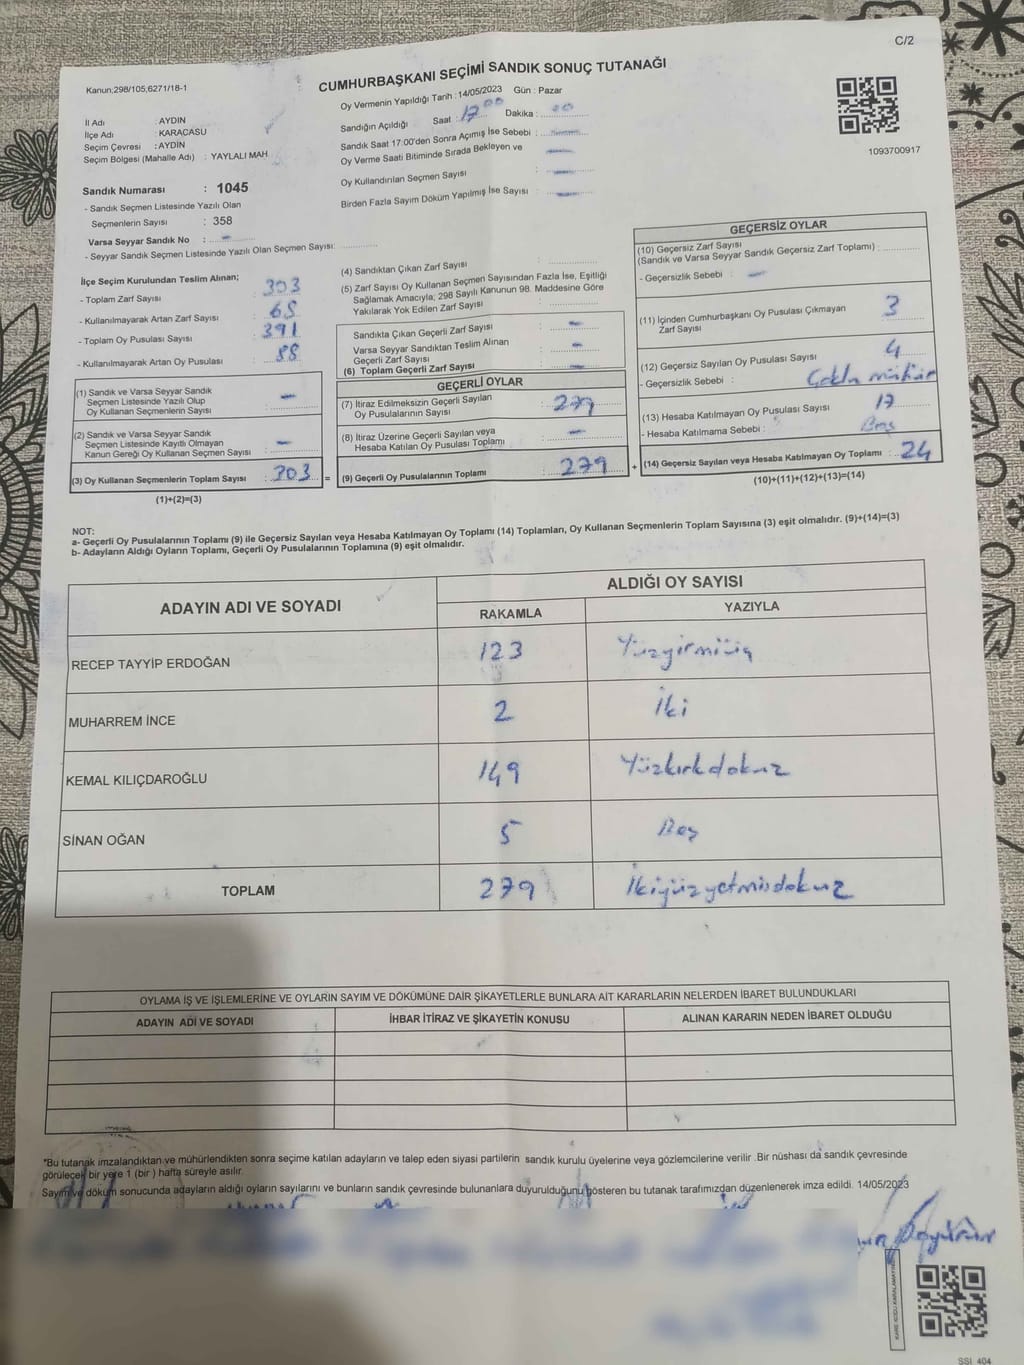 C/2
Kanun;298/105,6271/18-1
CUMHURBAŞKANI SEÇİMİ SANDIK SONUÇ TUTANAĞI
Oy Vermenin Yapıldığı Tarih :14/05/2023 Gün : Pazar
İl Adı : AYDIN
İlçe Adı : KARACASU
Seçim Çevresi : AYDIN
Seçim Bölgesi (Mahalle Adı) : YAYLALI MAH.
Sandığın Açıldığı Saat : 17⁰⁰ Dakika : 00
Sandık Saat 17:00'den Sonra Açımış İse Sebebi :
Oy Verme Saati Bitiminde Sırada Bekleyen ve
Oy Kullandırılan Seçmen Sayısı :
Birden Fazla Sayım Döküm Yapılmış İse Sayısı :
1093700917
Sandık Numarası : 1045
- Sandık Seçmen Listesinde Yazılı Olan
Seçmenlerin Sayısı : 358
Varsa Seyyar Sandık No : -
- Seyyar Sandık Seçmen Listesinde Yazılı Olan Seçmen Sayısı:
İlçe Seçim Kurulundan Teslim Alınan;
- Toplam Zarf Sayısı : 303
- Kullanılmayarak Artan Zarf Sayısı : 65
- Toplam Oy Pusulası Sayısı : 391
- Kullanılmayarak Artan Oy Pusulası : 88
(1) Sandık ve Varsa Seyyar Sandık
Seçmen Listesinde Yazılı Olup
Oy Kullanan Seçmenlerin Sayısı : -
(2) Sandık ve Varsa Seyyar Sandık
Seçmen Listesinde Kayıtlı Olmayan
Kanun Gereği Oy Kullanan Seçmen Sayısı : -
(3) Oy Kullanan Seçmenlerin Toplam Sayısı : 303 =
(1)+(2)=(3)
(4) Sandıktan Çıkan Zarf Sayısı :
(5) Zarf Sayısı Oy Kullanan Seçmen Sayısından Fazla İse, Eşitliği
Sağlamak Amacıyla; 298 Sayılı Kanunun 98. Maddesine Göre
Yakılarak Yok Edilen Zarf Sayısı :
Sandıkta Çıkan Geçerli Zarf Sayısı : -
Varsa Seyyar Sandıktan Teslim Alınan
Geçerli Zarf Sayısı : -
(6) Toplam Geçerli Zarf Sayısı : -
GEÇERLİ OYLAR
(7) İtiraz Edilmeksizin Geçerli Sayılan
Oy Pusulalarının Sayısı : 279
(8) İtiraz Üzerine Geçerli Sayılan veya
Hesaba Katılan Oy Pusulası Toplamı : -
(9) Geçerli Oy Pusulalarının Toplamı : 279 +
GEÇERSİZ OYLAR
(10) Geçersiz Zarf Sayısı
(Sandık ve Varsa Seyyar Sandık Geçersiz Zarf Toplamı) :
- Geçersizlik Sebebi : -
(11) İçinden Cumhurbaşkanı Oy Pusulası Çıkmayan
Zarf Sayısı : 3
(12) Geçersiz Sayılan Oy Pusulası Sayısı : 4
- Geçersizlik Sebebi : Çoklu mühür
(13) Hesaba Katılmayan Oy Pusulası Sayısı : 17
- Hesaba Katılmama Sebebi : Boş
(14) Geçersiz Sayılan veya Hesaba Katılmayan Oy Toplamı : 24
(10)+(11)+(12)+(13)=(14)
NOT:
a- Geçerli Oy Pusulalarının Toplamı (9) ile Geçersiz Sayılan veya Hesaba Katılmayan Oy Toplamı (14) Toplamları, Oy Kullanan Seçmenlerin Toplam Sayısına (3) eşit olmalıdır. (9)+(14)=(3)
b- Adayların Aldığı Oyların Toplamı, Geçerli Oy Pusulalarının Toplamına (9) eşit olmalıdır.
ADAYIN ADI VE SOYADI ALDIĞI OY SAYISI
RAKAMLA YAZIYLA
RECEP TAYYİP ERDOĞAN 123 Yüzyirmiüç
MUHARREM İNCE 2 İki
KEMAL KILIÇDAROĞLU 149 Yüzkırkdokuz
SİNAN OĞAN 5 Beş
TOPLAM 279 İkiyüzyetmişdokuz
OYLAMA İŞ VE İŞLEMLERİNE VE OYLARIN SAYIM VE DÖKÜMÜNE DAİR ŞİKAYETLERLE BUNLARA AİT KARARLARIN NELERDEN İBARET BULUNDUKLARI
ADAYIN ADI VE SOYADI İHBAR İTİRAZ VE ŞİKAYETİN KONUSU ALINAN KARARIN NEDEN İBARET OLDUĞU
*Bu tutanak imzalandıktan ve mühürlendikten sonra seçime katılan adayların ve talep eden siyasi partilerin sandık kurulu üyelerine veya gözlemcilerine verilir .Bir nüshası da sandık çevresinde
görülecek bir yere 1 (bir ) hafta süreyle asılır.
Sayım ve döküm sonucunda adayların aldığı oyların sayılarını ve bunların sandık çevresinde bulunanlara duyurulduğunu gösteren bu tutanak tarafımızdan düzenlenerek imza edildi. 14/05/2023
KARE KODU KARALAMAYINIZ
SSI_404